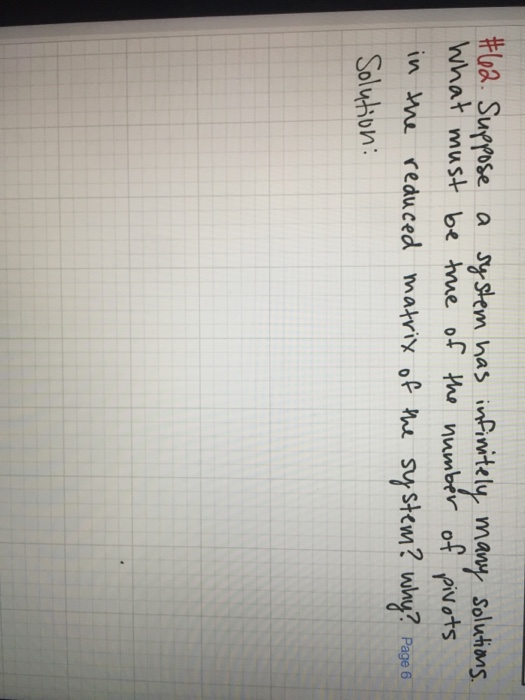 #62. Suppose a system has infinitely many solutions.
What must be true of the number of pivots
in the reduced matrix of the system? Why?
Page 6
Solution: